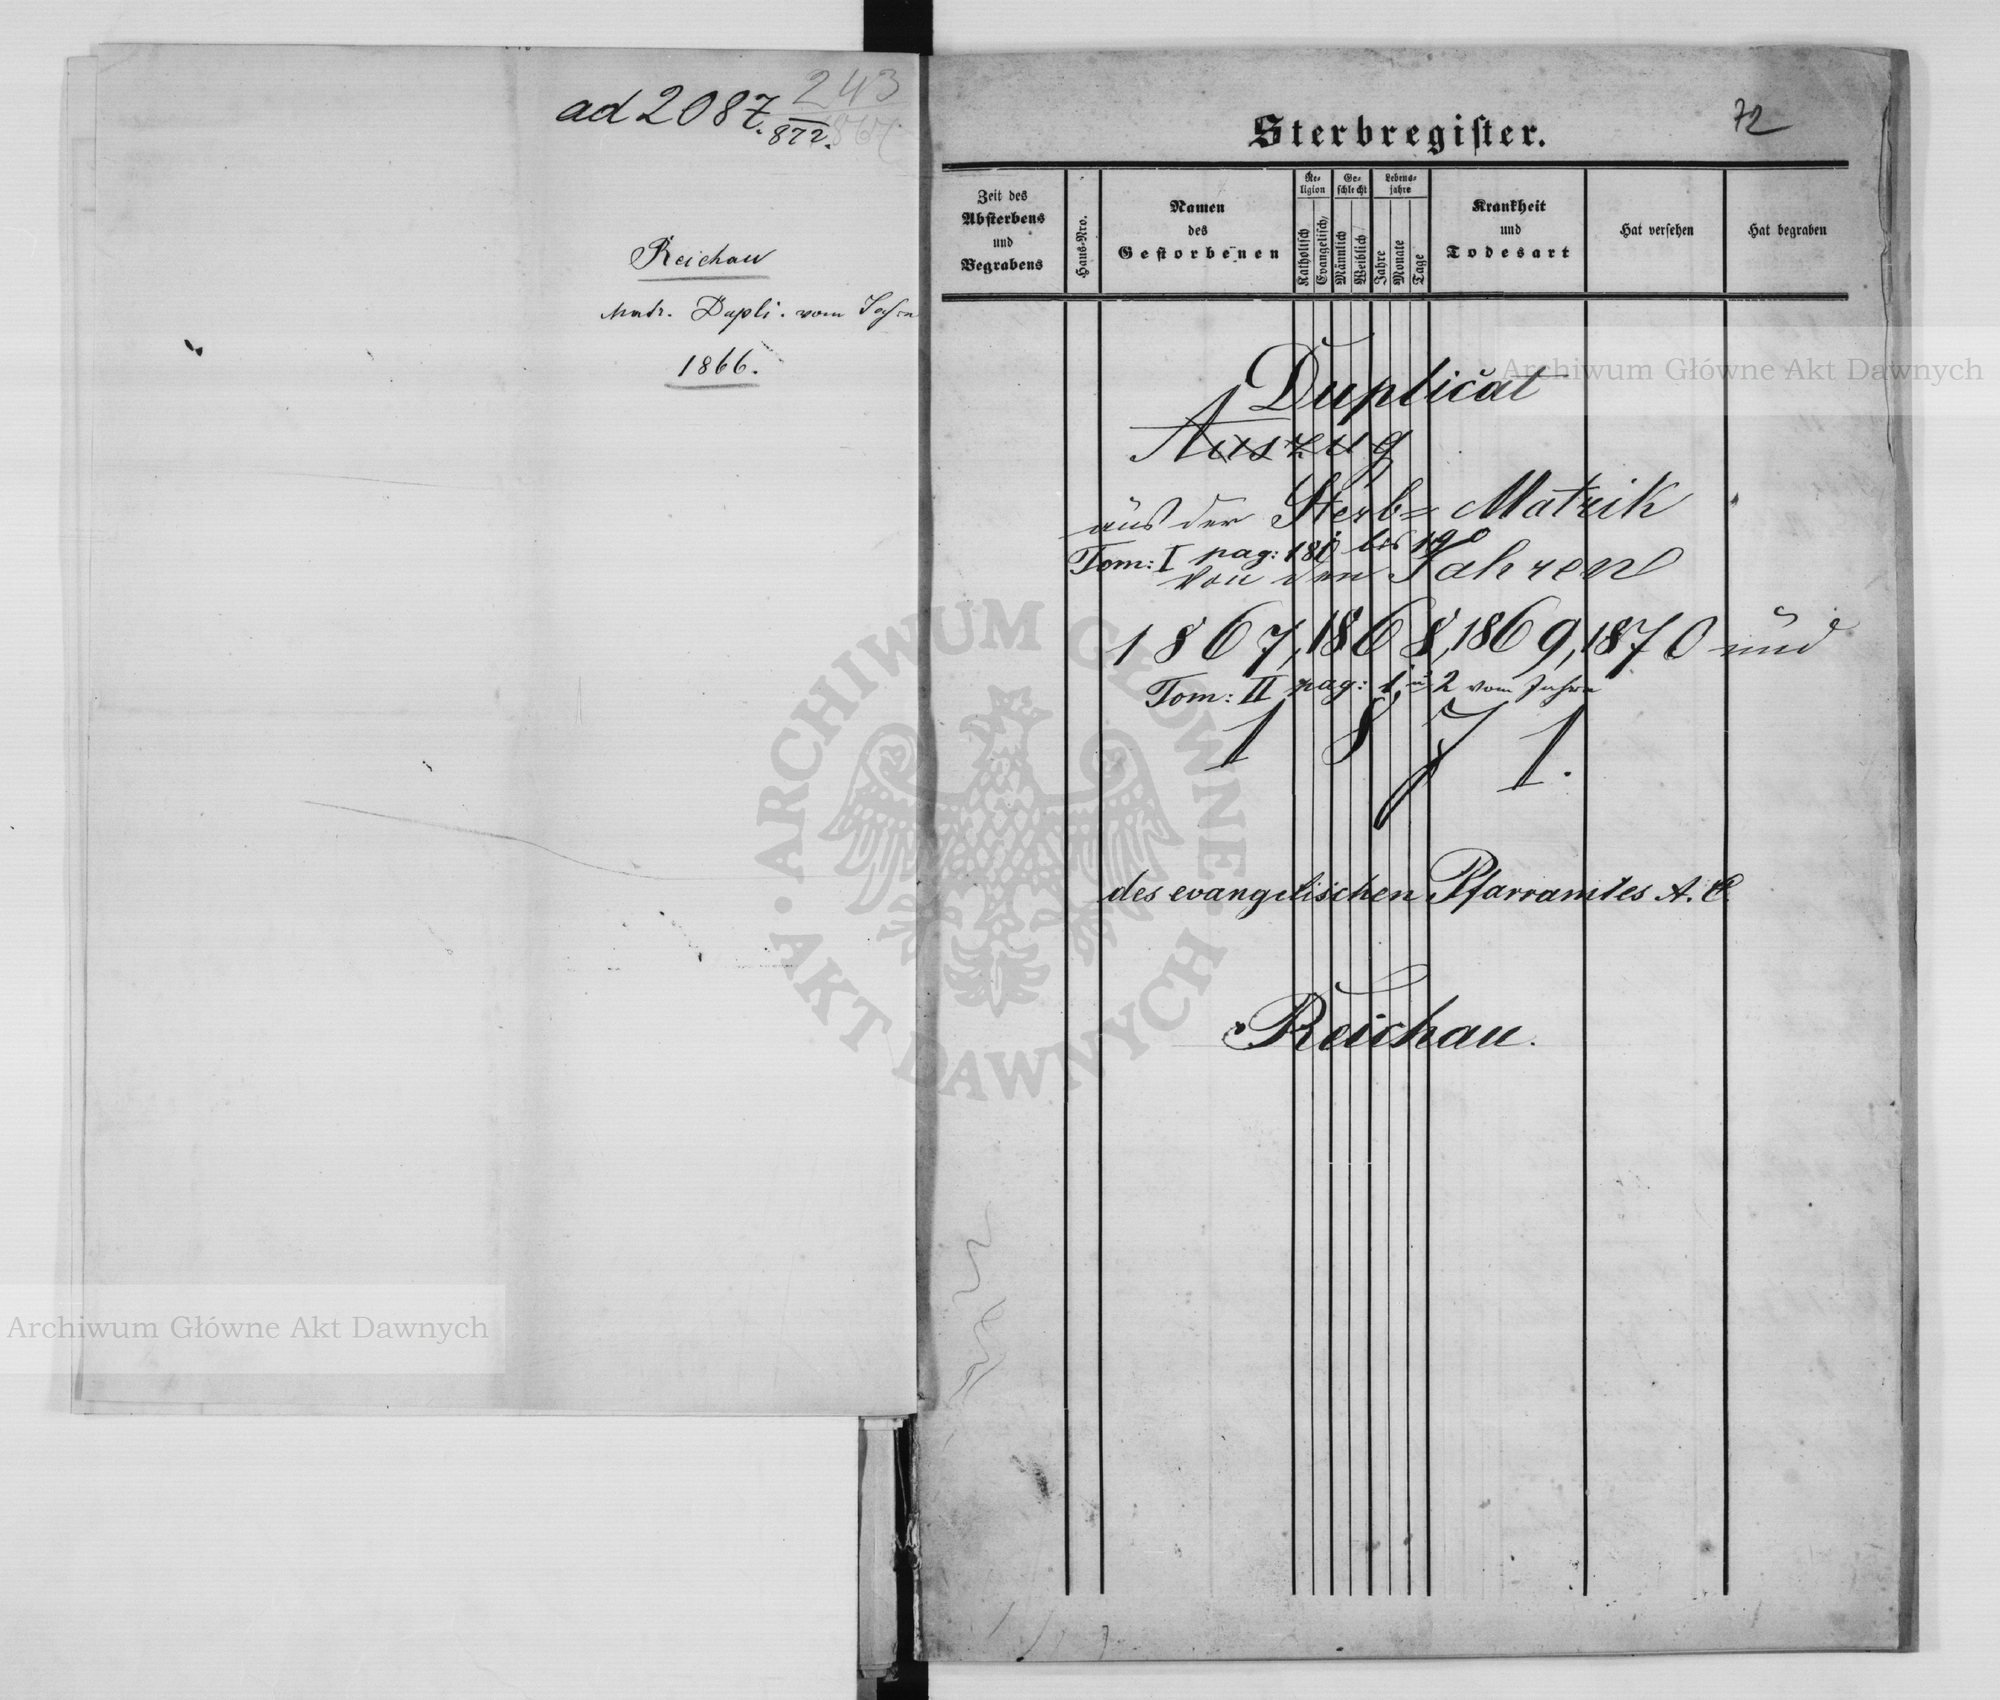 243
ad 2087.
872.
Reichau
Matr. Dupli. vom Jahre
1866.
72
Sterbregister.
Zeit des
Absterbens
und
Begrabens
Haus-Nro.
Namen
des
Gestorbenen
Re-
ligion
Katholisch
Evangelisch
Ge-
schlecht
Männlich
Weiblich
Lebens-
jahre
Jahre
Monate
Tage
Krankheit
und
Todesart
Hat versehen
Hat begraben
Duplicat
Auszug
aus der Sterb= Matrik
Tom: I pag: 181 bis 190
von den Jahren
1867, 1868, 1869, 1870 und
Tom: II pag: 1 u 2 vom Jahre
1871.
des evangelischen Pfarramtes A. C.
Reichau.
Archiwum Główne Akt Dawnych
ARCHIWUM GŁÓWNE · AKT DAWNYCH ·
Archiwum Główne Akt Dawnych